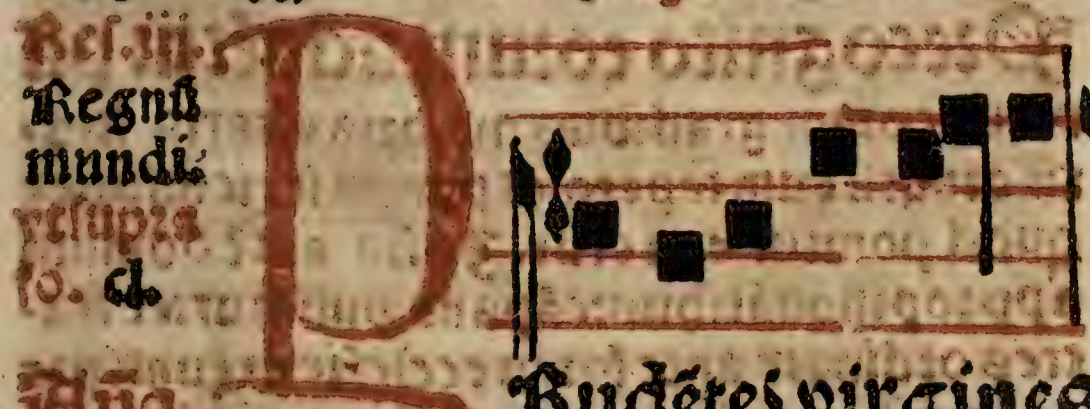 Res. iij.
Regnũ
mundi.
vt supra
fo. cl.
P Rudẽtes virgines
Añã.